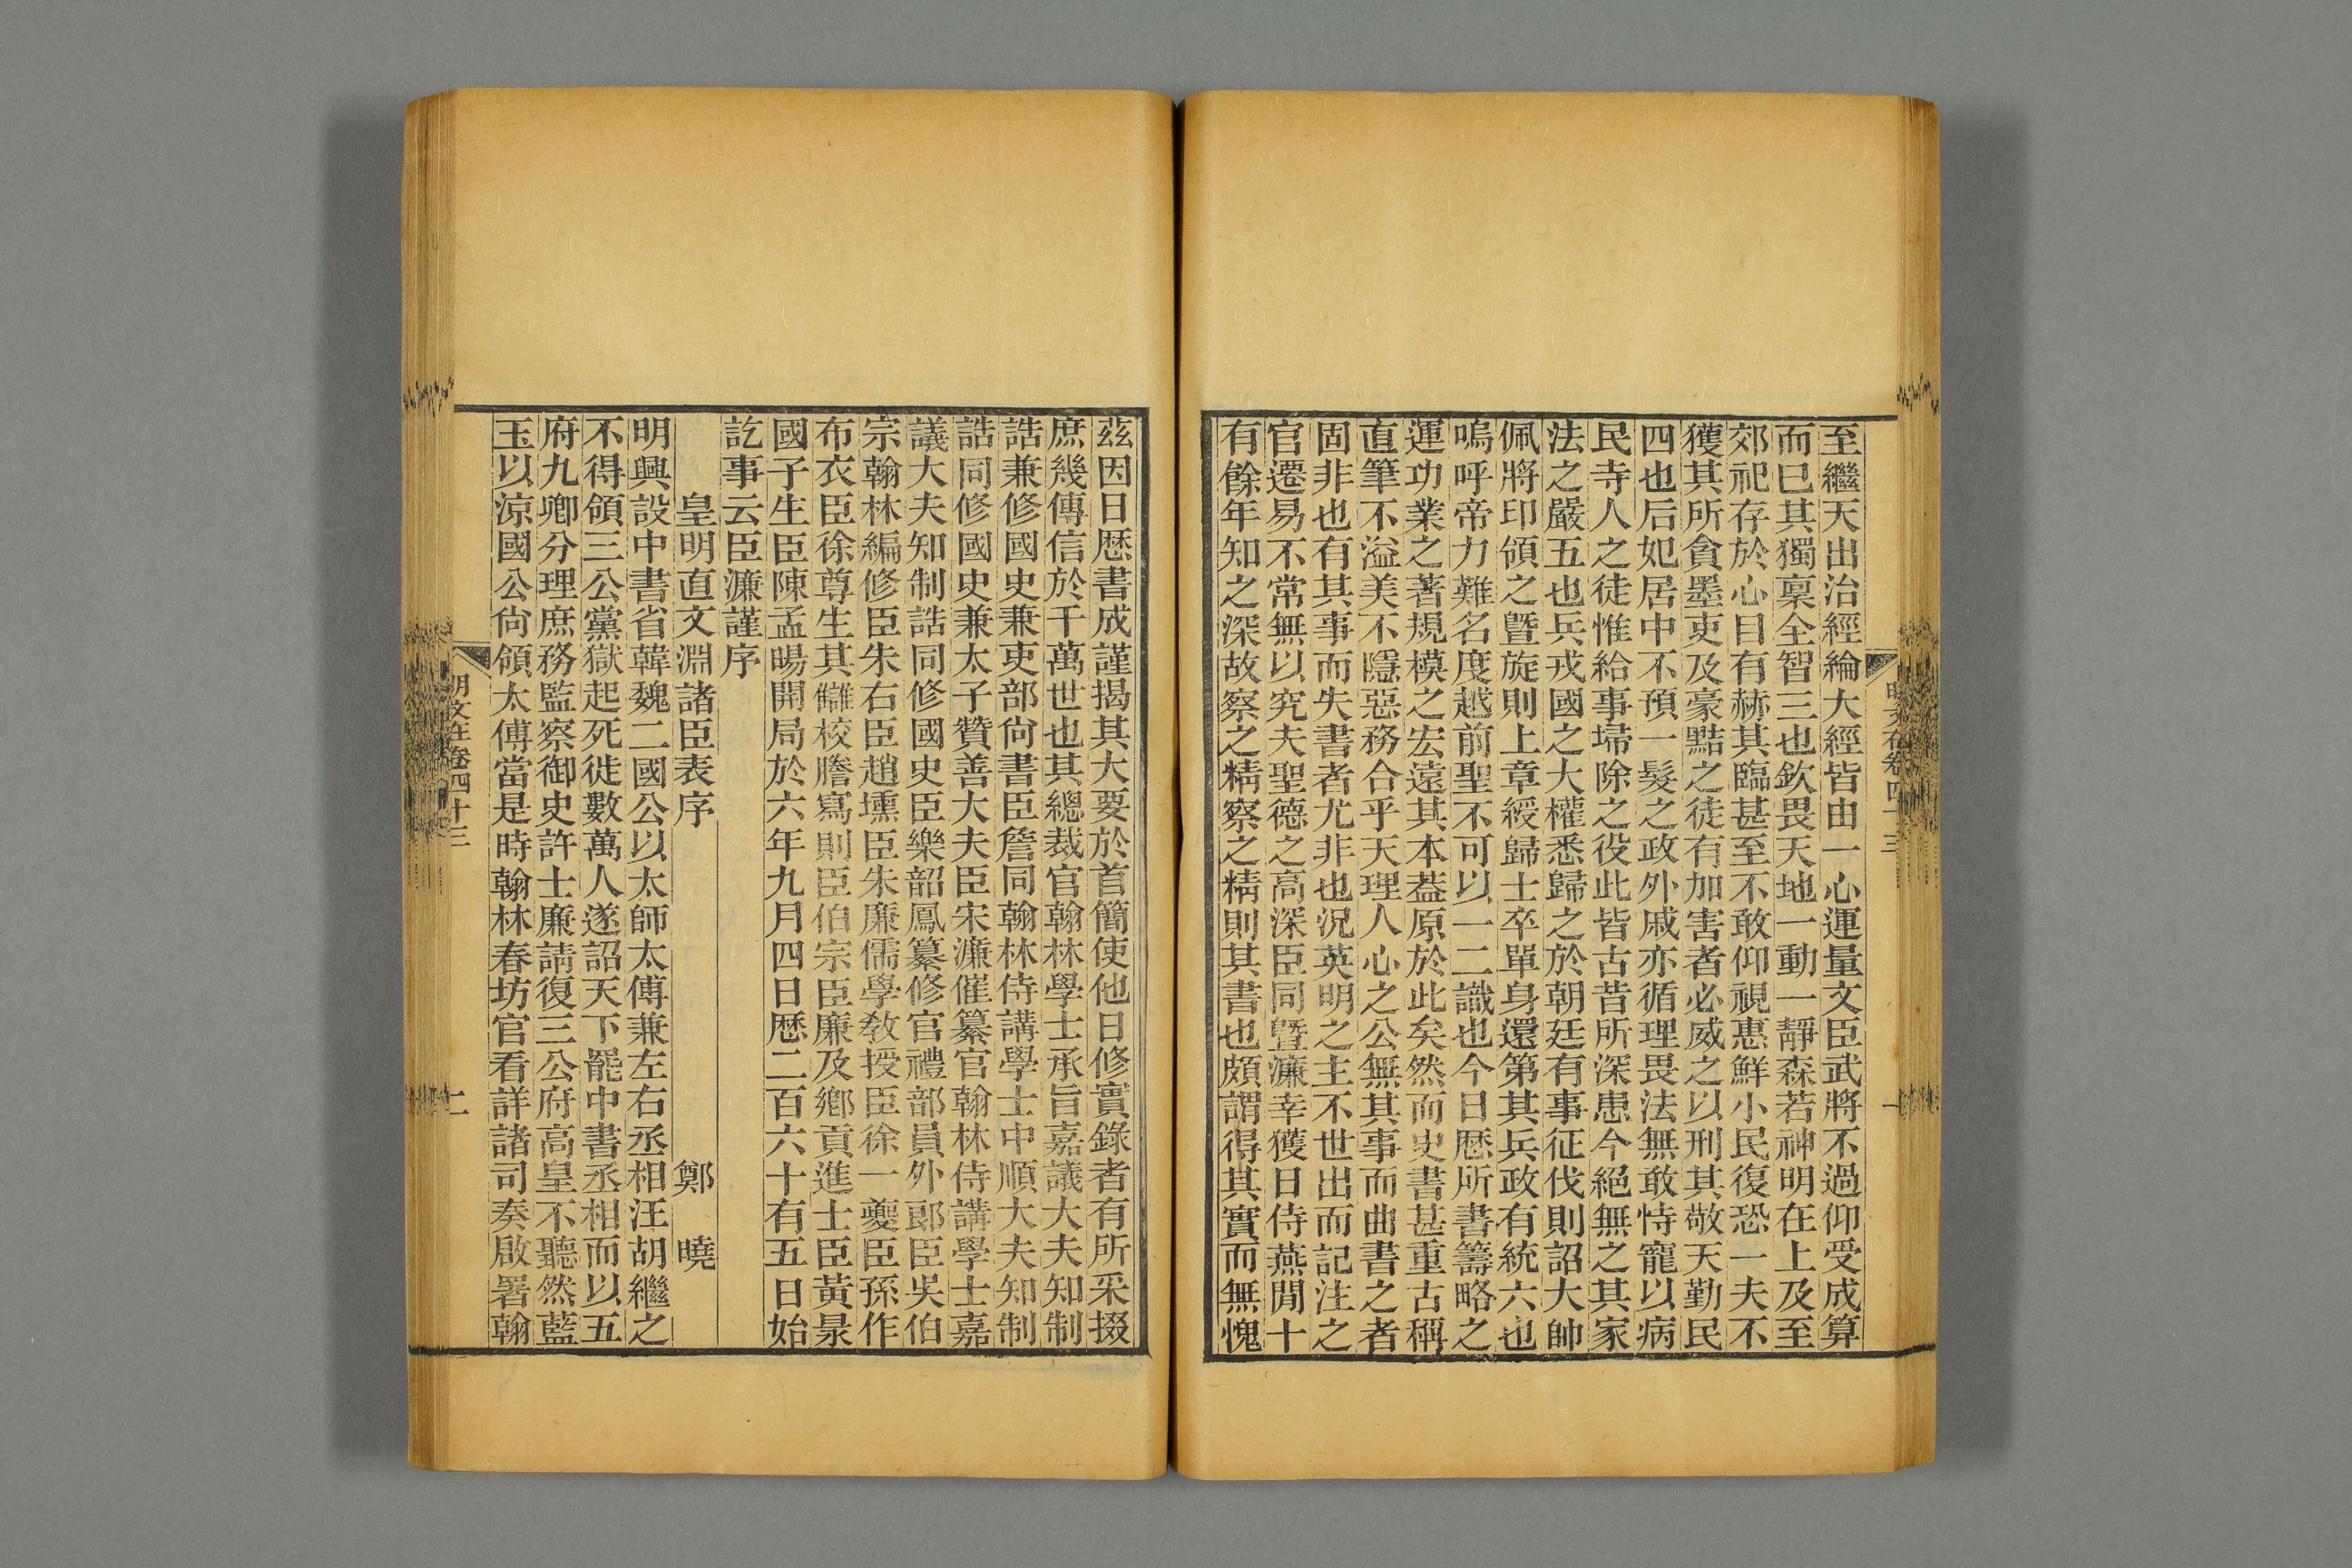 至繼天出治經綸大經皆由一心運量文臣武將不過仰受成算
而已其獨稟全智三也欽畏天地一動一靜森若神明在上及至
郊祀存於心目有赫其臨甚至不敢仰視惠鮮小民復恐一夫不
獲其所貪墨吏及豪黠之徒有加害者必威之以刑其敬天勤民
四也后妃居中不預一髮之政外戚亦循理畏法無敢恃寵以病
民寺人之徒惟給事埽除之役此皆古昔所深患今絕無之其家
法之嚴五也兵戎國之大權悉歸之於朝廷有事征伐則詔大帥
佩將印領之曁旋則上章綬歸士卒單身還第其兵政有統六也
嗚呼帝力難名度越前聖不可以一二識也今日歷所書籌略之
運功業之著規模之宏遠其本葢原於此矣然而史書甚重古稱
直筆不溢美不隱惡務合乎天理人心之公無其事而曲書之者
固非也有其事而失書者尤非也況英明之主不世出而記注之
官遷易不常無以究夫聖德之高深臣同曁濂幸獲日侍燕閒十
有餘年知之深故察之精察之精則其書也頗謂得其實而無愧
茲因日歷書成謹揭其大要於首簡使他日修實錄者有所采掇
庶幾傳信於千萬世也其總裁官翰林學士承旨嘉議大夫知制
誥兼修國史兼吏部尙書臣詹同翰林侍講學士中順大夫知制
誥同修國史兼太子贊善大夫臣宋濂催纂官翰林侍講學士嘉
議大夫知制誥同修國史臣樂韶鳳纂修官禮部員外郎臣吳伯
宗翰林編修臣朱右臣趙壎臣朱廉儒學敎授臣徐一夔臣孫作
布衣臣徐尊生其讎校謄寫則臣伯宗臣廉及鄉貢進士臣黃㫤
國子生臣陳孟暘開局於六年九月四日歷二百六十有五日始
訖事云臣濂謹序
皇明直文淵諸臣表序 鄭 曉
明興設中書省韓魏二國公以太師太傅兼左右丞相汪胡繼之
不得領三公黨獄起死徙數萬人遂詔天下罷中書丞相而以五
府九卿分理庶務監察御史許士廉請復三公府高皇不聽然藍
玉以涼國公尙領太傅當是時翰林春坊官看詳諸司奏啟署翰
明文在卷四十三
二